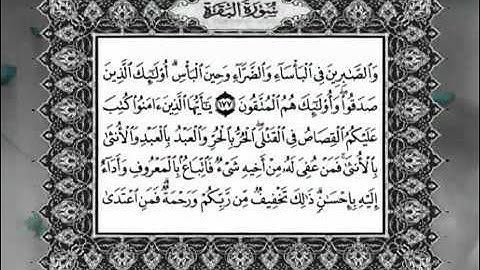 سُورَةُ البَقَرَةِ
وَالصَّٰبِرِينَ فِي الْبَأْسَآءِ وَالضَّرَّآءِ وَحِينَ الْبَأْسِ ۗ أُولَٰٓئِكَ الَّذِينَ
صَدَقُوا ۖ وَأُولَٰٓئِكَ هُمُ الْمُتَّقُونَ ١٧٧ يَٰٓأَيُّهَا الَّذِينَ ءَامَنُوا كُتِبَ
عَلَيْكُمُ الْقِصَاصُ فِي الْقَتْلَى ۖ الْحُرُّ بِالْحُرِّ وَالْعَبْدُ بِالْعَبْدِ وَالْأُنثَىٰ
بِالْأُنثَىٰ ۚ فَمَنْ عُفِيَ لَهُ مِنْ أَخِيهِ شَيْءٌ فَاتِّبَاعٌ بِالْمَعْرُوفِ وَأَدَآءٌ
إِلَيْهِ بِإِحْسَٰنٍ ۗ ذَٰلِكَ تَخْفِيفٌ مِّن رَّبِّكُمْ وَرَحْمَةٌ ۗ فَمَنِ اعْتَدَىٰ